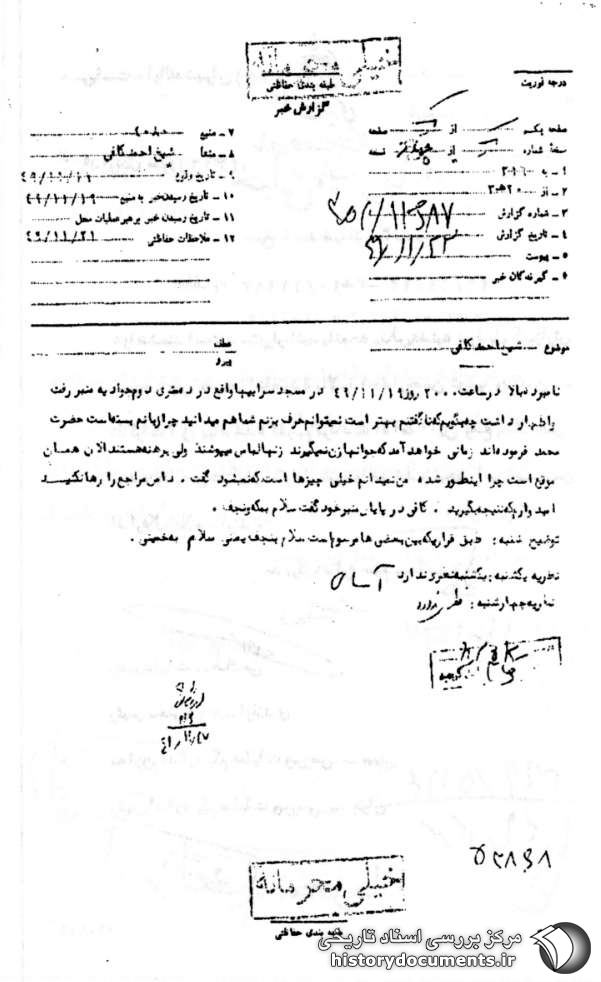 خیلی محرمانه
طبقه بندی حفاظتی
گزارش خبر
درجه فوریت
صفحه یکم از صفحه
نسخه شماره از نسخه
۱ - به ۳۱۶
۲ - از ۲۰ه۳
۳ - شماره گزارش
۴ - تاریخ گزارش ۴۹/۱۱/۲۲
۵ - پیوست
۶ - گیرندگان خبر
۷ - منبع
۸ - منشأ شیخ احمد کافی
۹ - تاریخ وقوع ۴۹/۱۱/۱۹
۱۰ - تاریخ رسیدن خبر به منبع ۴۹/۱۱/۱۹
۱۱ - تاریخ رسیدن خبر برهبر عملیات محل
۱۲ - ملاحظات حفاظتی ۴۹/۱۱/۲۱
موضوع شیخ احمد کافی
نامبرده بالا در ساعت ۲۰۰۰ روز ۴۹/۱۱/۱۹ در مسجد واقع در دومتری دوم جوادیه منبر رفت
و اظهار داشت چه بگویم که ناگفتنم بهتر است نمیتوانم حرف بزنم شما هم میدانید چرا زبانم بسته است حضرت
محمد فرموده اند زمانی خواهد آمد که جوانها زن نمیگیرند زنها لباس میپوشند ولی برهنه هستند الان همان
موقع است چرا اینطور شده من نمیدانم خیلی چیزها است که نمیشود گفت . دامن مراجع را رها نکنید
امیدوارم که نتیجه بگیرید . کافی در پایان منبر خود گفت سلام بمکه و نجف .
توضیح شنبه : طبق قراریکه بین بعضی ها مرسوم است سلام بنجف یعنی سلام به خمینی .
نظریه یکشنبه : یکشنبه نظری ندارد
نظریه چهارشنبه : نظری ندارد
خیلی محرمانه
طبقه بندی حفاظتی
مرکز بررسی اسناد تاریخی
historydocuments.ir